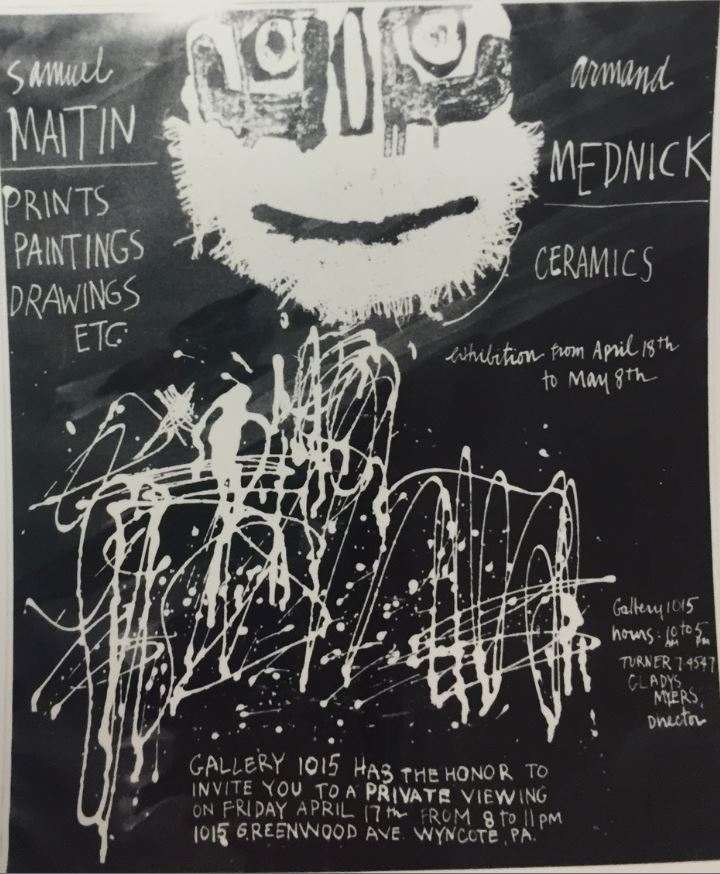 samuel
MAITIN
PRINTS
PAINTINGS
DRAWINGS
ETC.
armand
MEDNICK
CERAMICS
exhibition from April 18th
to May 8th
Gallery 1015
hours: 10 to 5
AM PM
TURNER 7-4547
GLADYS
MYERS,
Director
GALLERY 1015 HAS THE HONOR TO
INVITE YOU TO A PRIVATE VIEWING
ON FRIDAY APRIL 17th FROM 8 to 11 PM
1015 GREENWOOD AVE. WYNCOTE, PA.